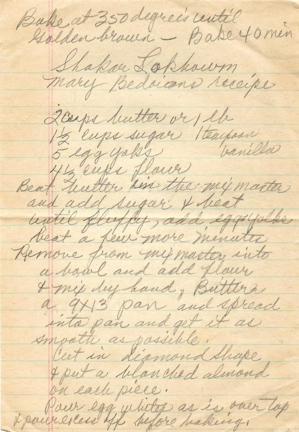 Bake at 350 degrees until
Golden brown — Bake 40 min
Shakar Lokhowm
Mary Bedoians receipe
2 cups butter or 1 lb
1½ cups sugar 1 teaspoon
5 egg yolks vanilla
4½ cups flour
Beat butter in the mix master
and add sugar & beat
until fluffy, add egg yolks
beat a few more minutes
Remove from mix master into
a bowl and add flour
& mix by hand, Butter
a 9X13 pan and spread
into pan and get it as
smooth as possible.
Cut in diamond shape
& put a blanched almond
on each piece.
Pour egg whites as is over top
& pour excess off before baking.